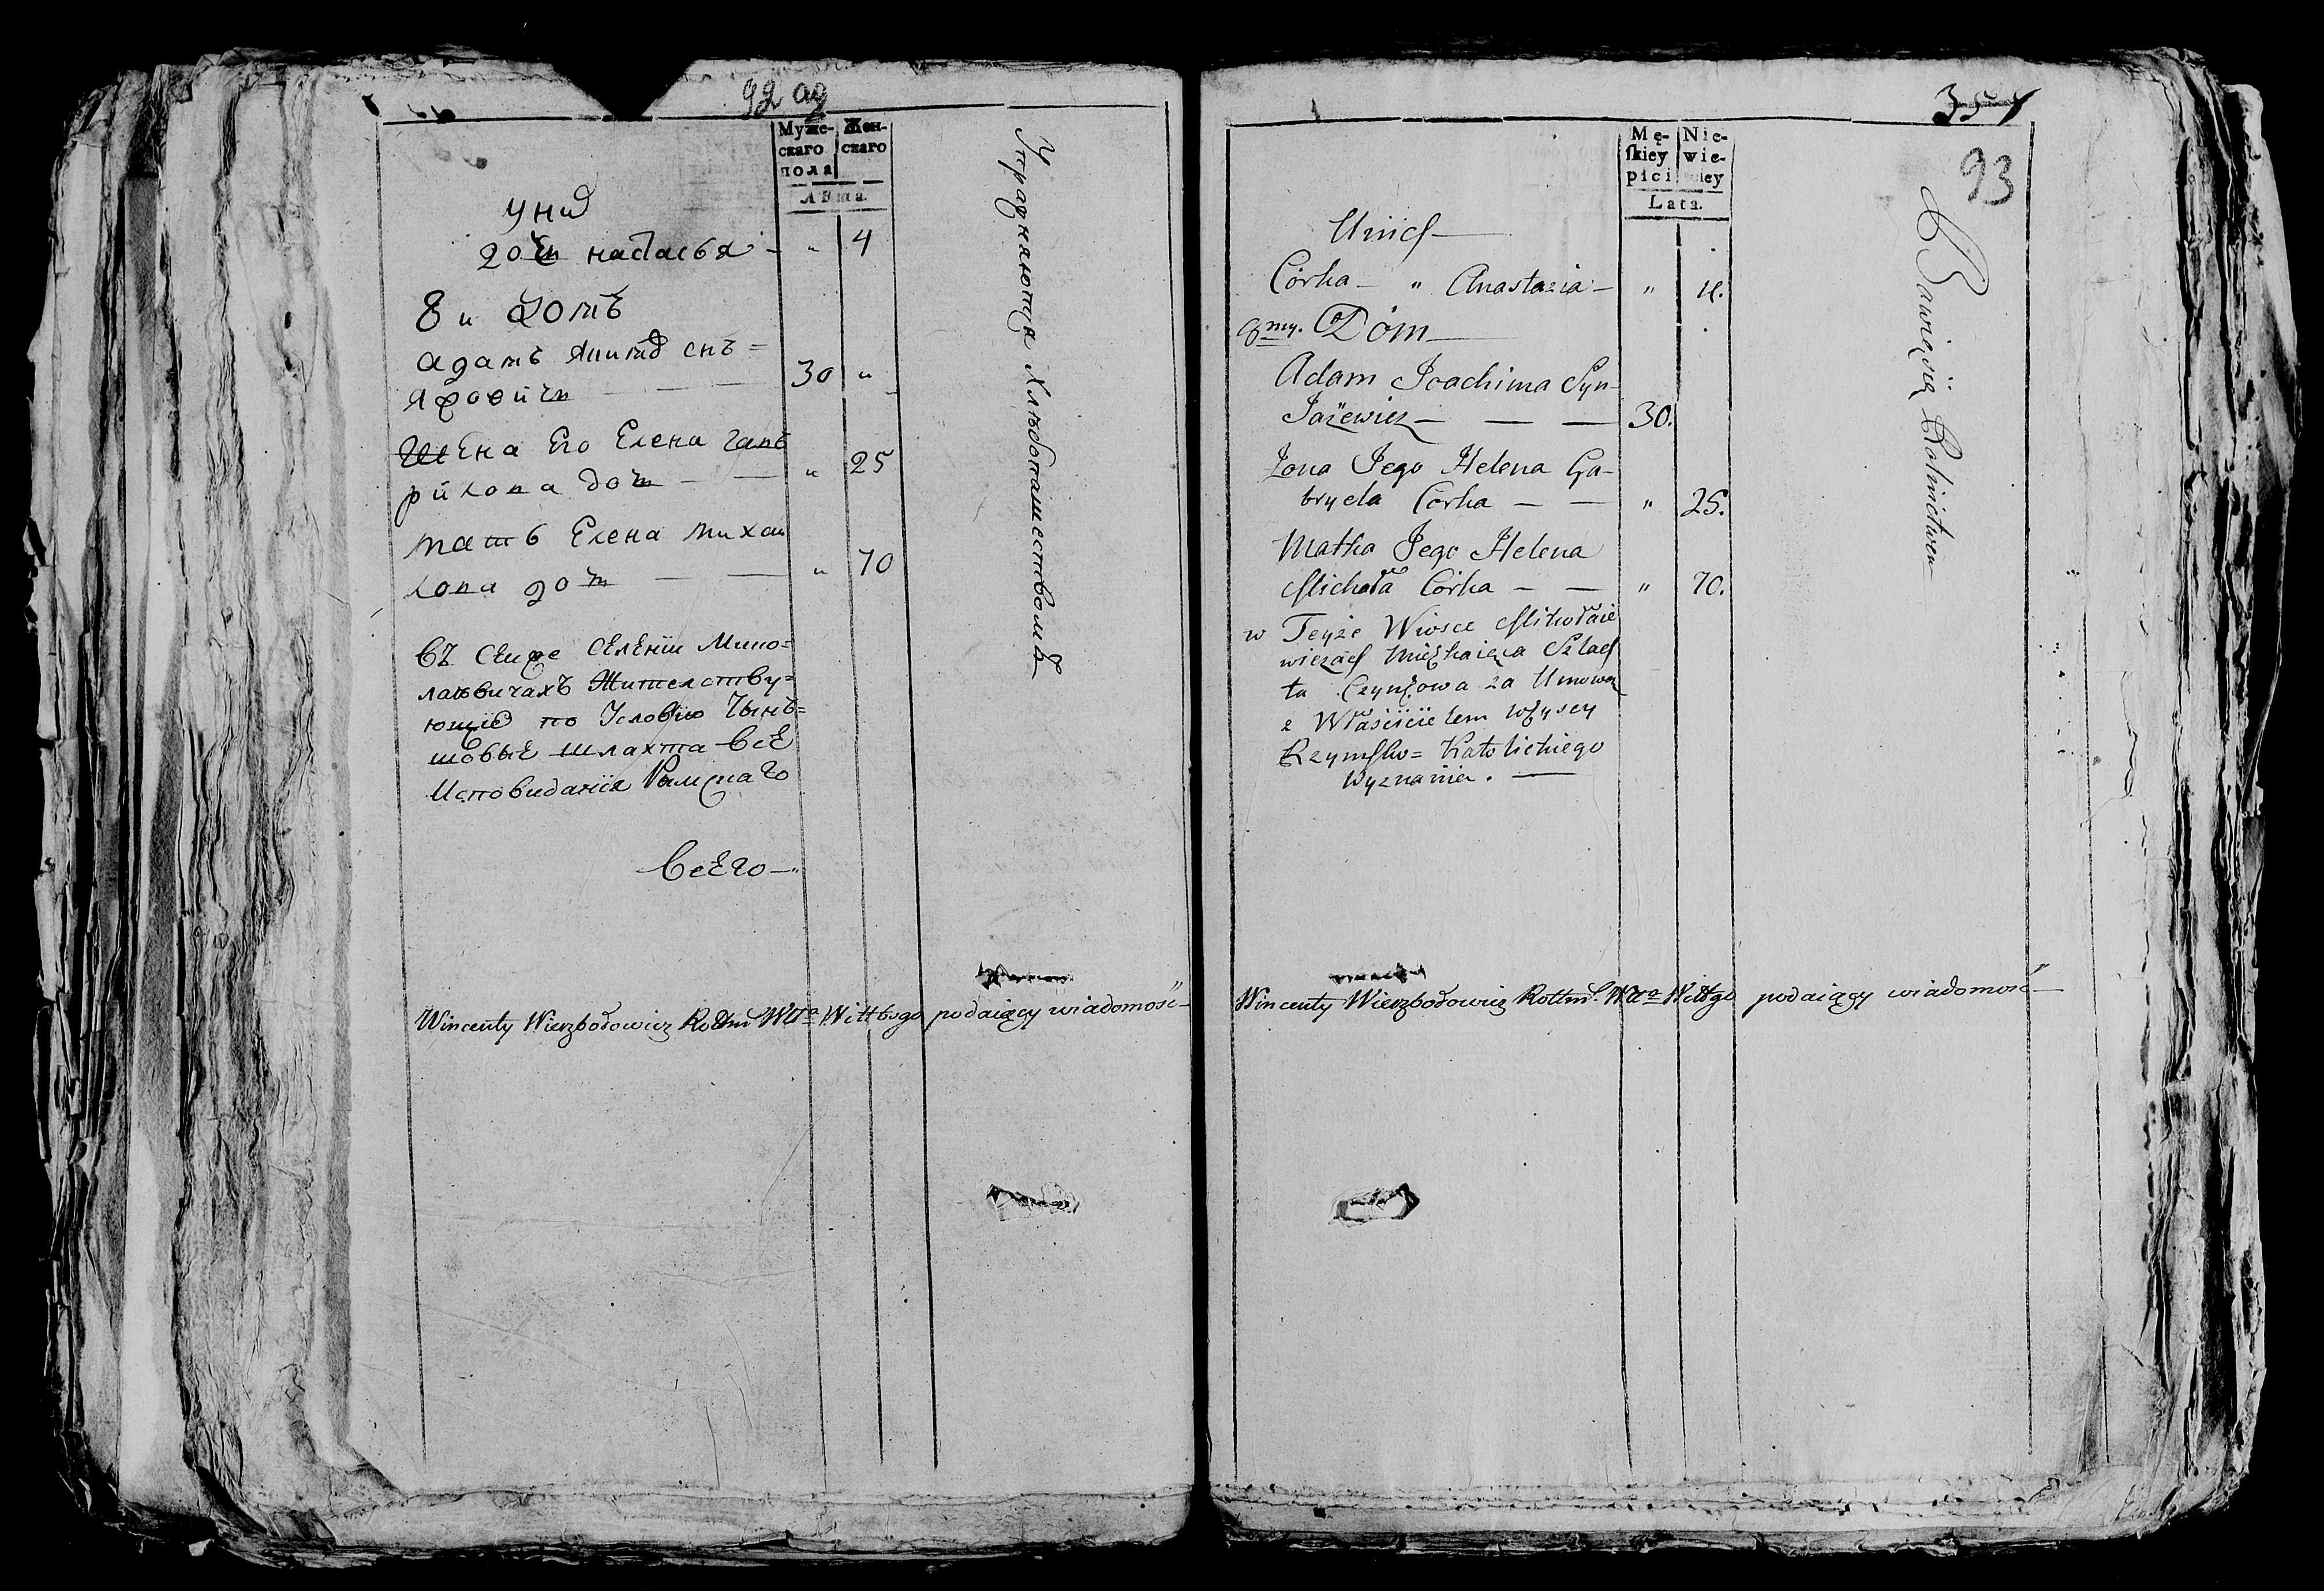 92 ад
Муже- Жен-
скаго скаго
пола
Лѣта.
у нид
дочь настасья - " 4
8 и домъ
Адамъ Якима снъ =
Яровичъ — — 30 "
Жена Его Елена Гавъ
рилова доч — — " 25
мать Елена Михай
лова доч — — " 70
въ Сеиже Селении Мико=
лаевичахъ Жителству=
ющие по Условию Чынъ=
шовые шлахта все
Исповидания Римскаго
всего —
Упражняются Хлѣбопашествомъ
Wincenty Wierzbołowicz Rottm Wttwa Wittbsgo podaiący wiadomość —
354
93
Mę- Nie-
skiey wie-
pici skiey
Lata.
U nich —
Córka — " Anastazia — " 4.
8my. Dóm —
Adam Joachima Syn
Jazewicz — — — 30.
Zona Jego Helena Ga-
bryela Córka — — " 25.
Matka Jego Helena
Michała Córka — — " 70.
w Teyze Wiosce Mikołaie
wiczach Mieszkaiąca Szlach
ta Czynszowa za Umową
z Właścicielem wszyscy
Rzymsko = Katolickiego
Wyznania. —
Bawią się Rolnictwem
Wincenty Wierzbołowicz Rottm. Wttwa Wittgo podaiący wiadomość —